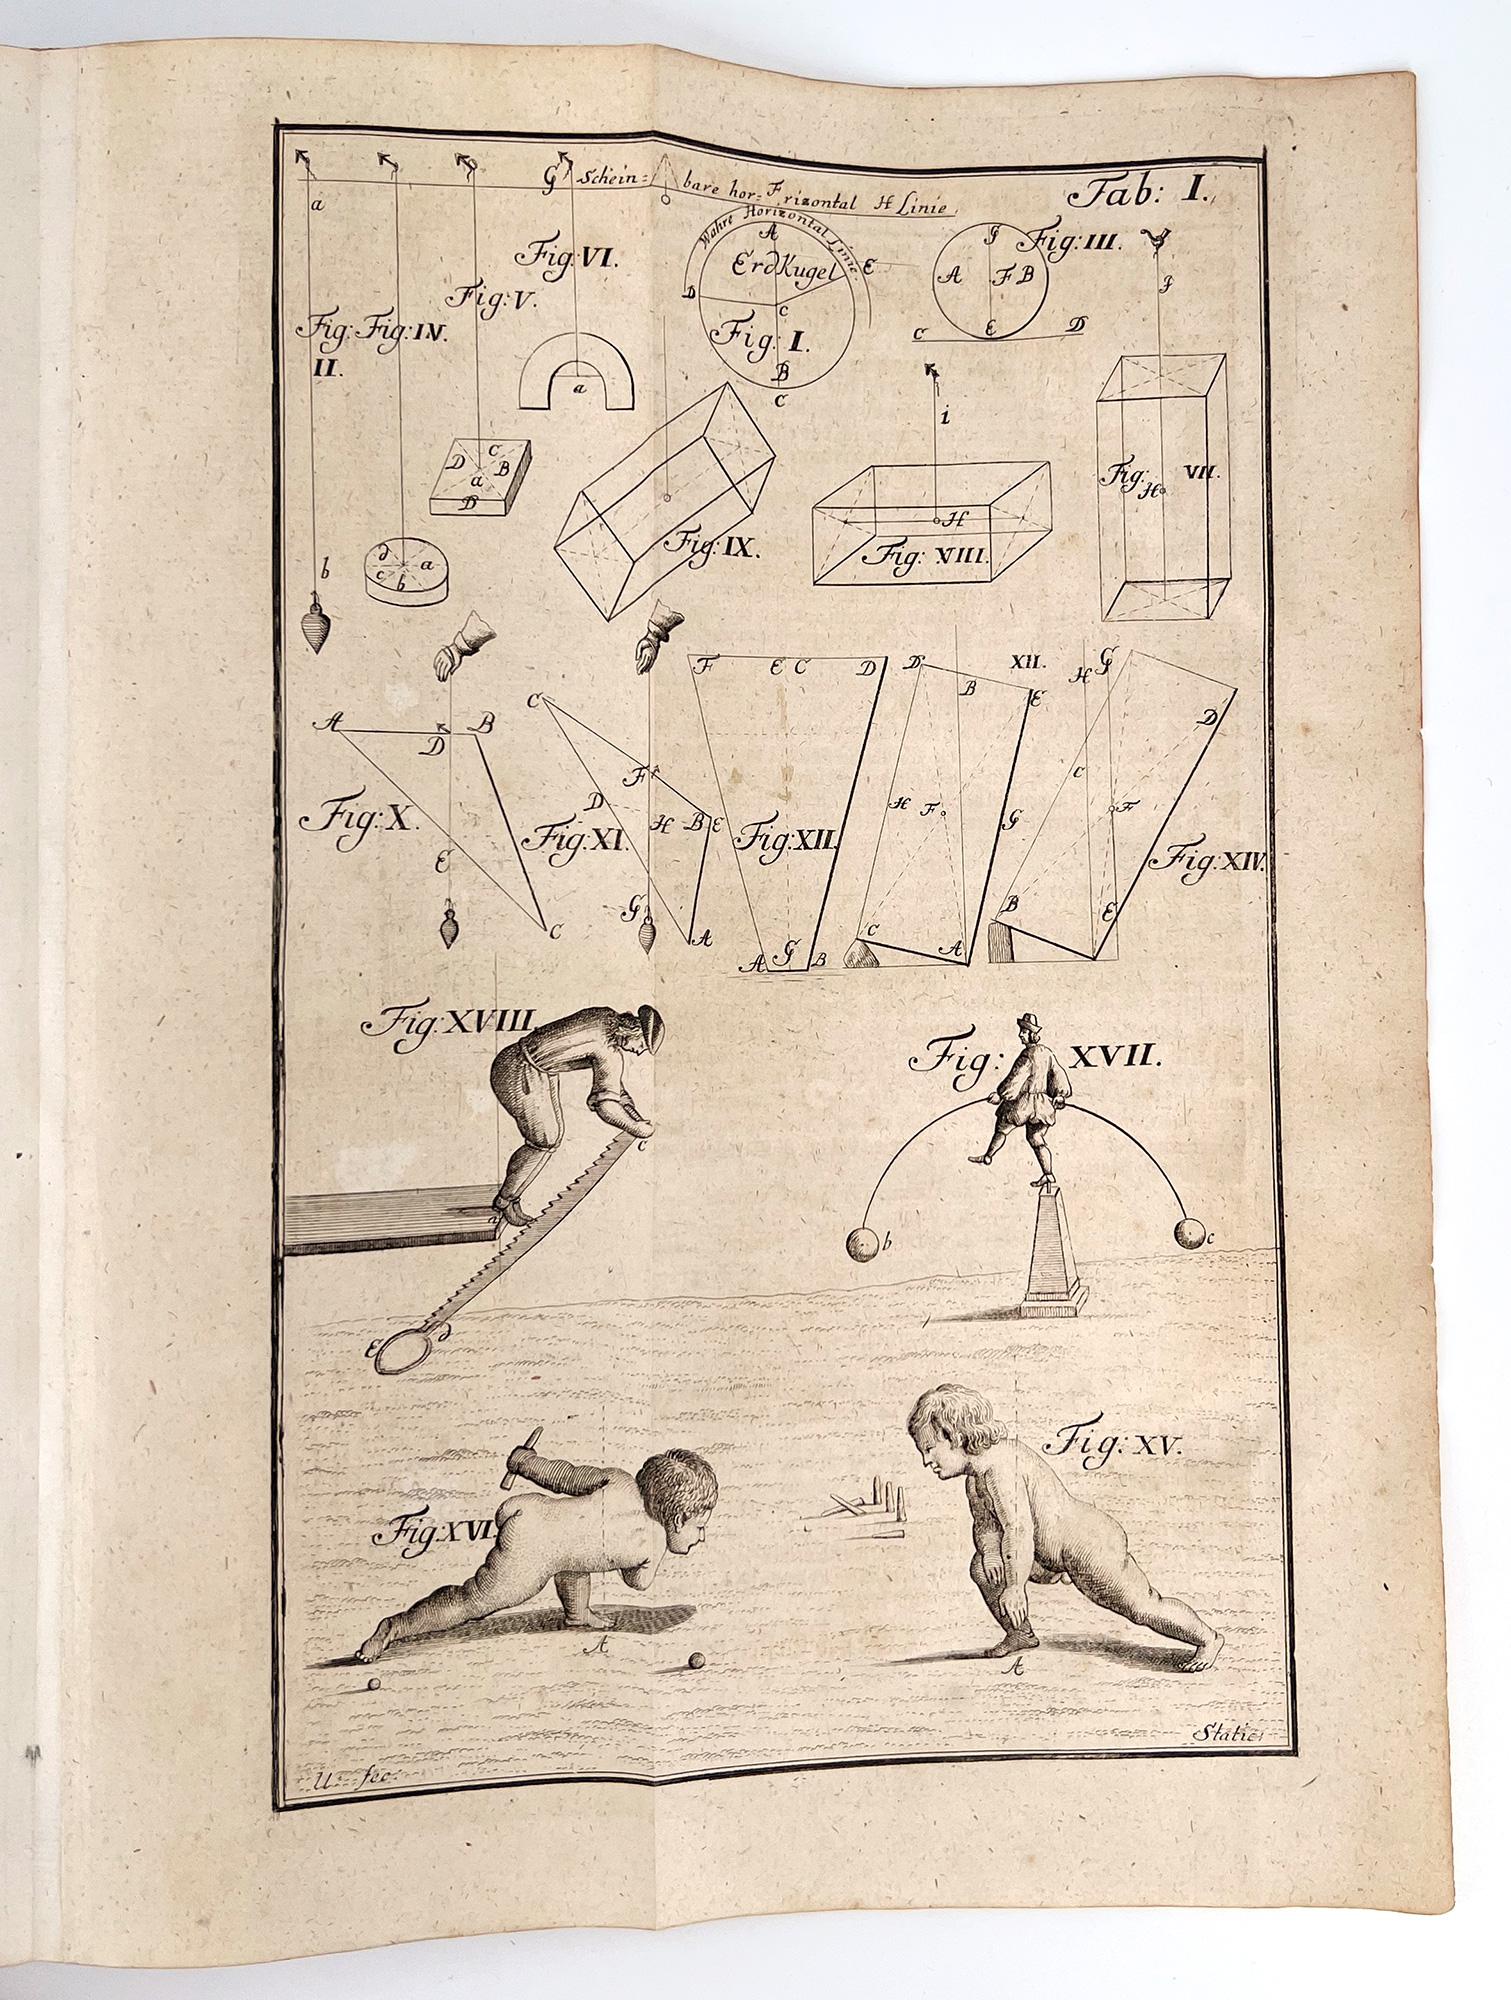 Tab: I.
G Schein= bare hor= F rizontal H Linie
Wahre Horizontal Linie
a
A
ErdKugel
E
D
C
Fig: I.
B
C
G
Fig: III.
A F B
E
C D
g
Fig: VI.
Fig: V.
Fig: II.
Fig: IV.
a
i
D C
a B
D
Fig: VII.
H
Fig: IX.
H
Fig: VIII.
d a
c b
b
A D B
Fig: X.
E
C
C
F
D
H B E
Fig: XI.
G
A
F E C D
Fig: XII.
A G B
D B XII. E
H F G
C A
H G
D
C
F
Fig: XIV.
B E
Fig: XVIII.
c
a
E d
Fig: XVII.
b c
Fig: XVI.
A
Fig: XV.
A
U. fec:
Static: